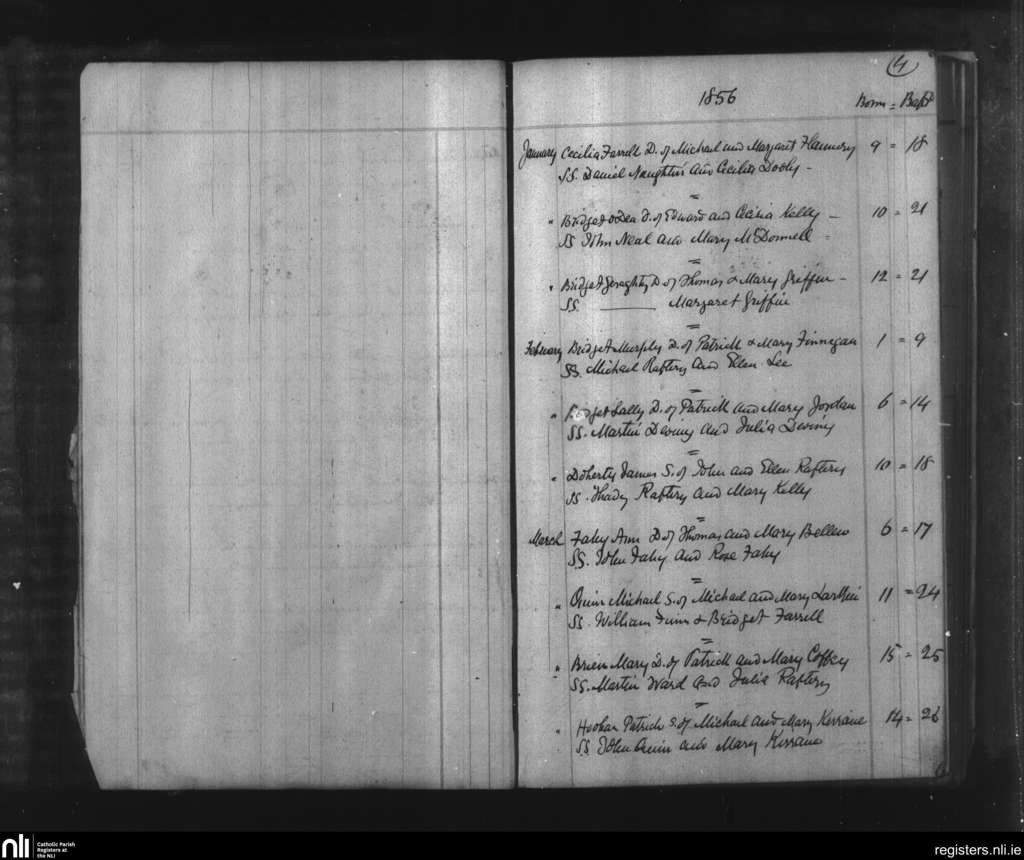 4
1856
Born = Bapt
January Cecilia Farrell D. of Michael and Margaret Flannery 9 = 18
SS. Daniel Naughtin and Cecilia Dooly -
" Bridget O'Dea D. of Edward and Cecilia Kelly - 10 = 21
SS John Neal and Mary McDonnell =
" Bridget Geraghty D of Thomas & Mary Griffin - 12 = 21
SS. Margaret Griffin
February Bridget Murphy D. of Patrick & Mary Finnegan 1 = 9
SS. Michael Raftery and Ellen Lee
" Bridget Lally D. of Patrick and Mary Jordan 6 = 14
SS. Martin Deviny and Julia Deviny
" Doherty James S. of John and Ellen Raftery 10 = 18
SS. Thady Raftery and Mary Kelly
March Fahy Ann D of Thomas and Mary Bellew 6 = 17
SS. John Fahy and Rose Fahy
" Quinn Michael S. of Michael and Mary Larkin 11 = 24
SS. William Finn & Bridget Farrell
" Brien Mary D. of Patrick and Mary Coffey 15 = 25
SS. Martin Ward and Julia Raftery
" Hooban Patrick S. of Michael and Mary Kerrane 14 = 26
SS John Quinn and Mary Kerrane
nli
Catholic Parish
Registers at
the NLI
registers.nli.ie